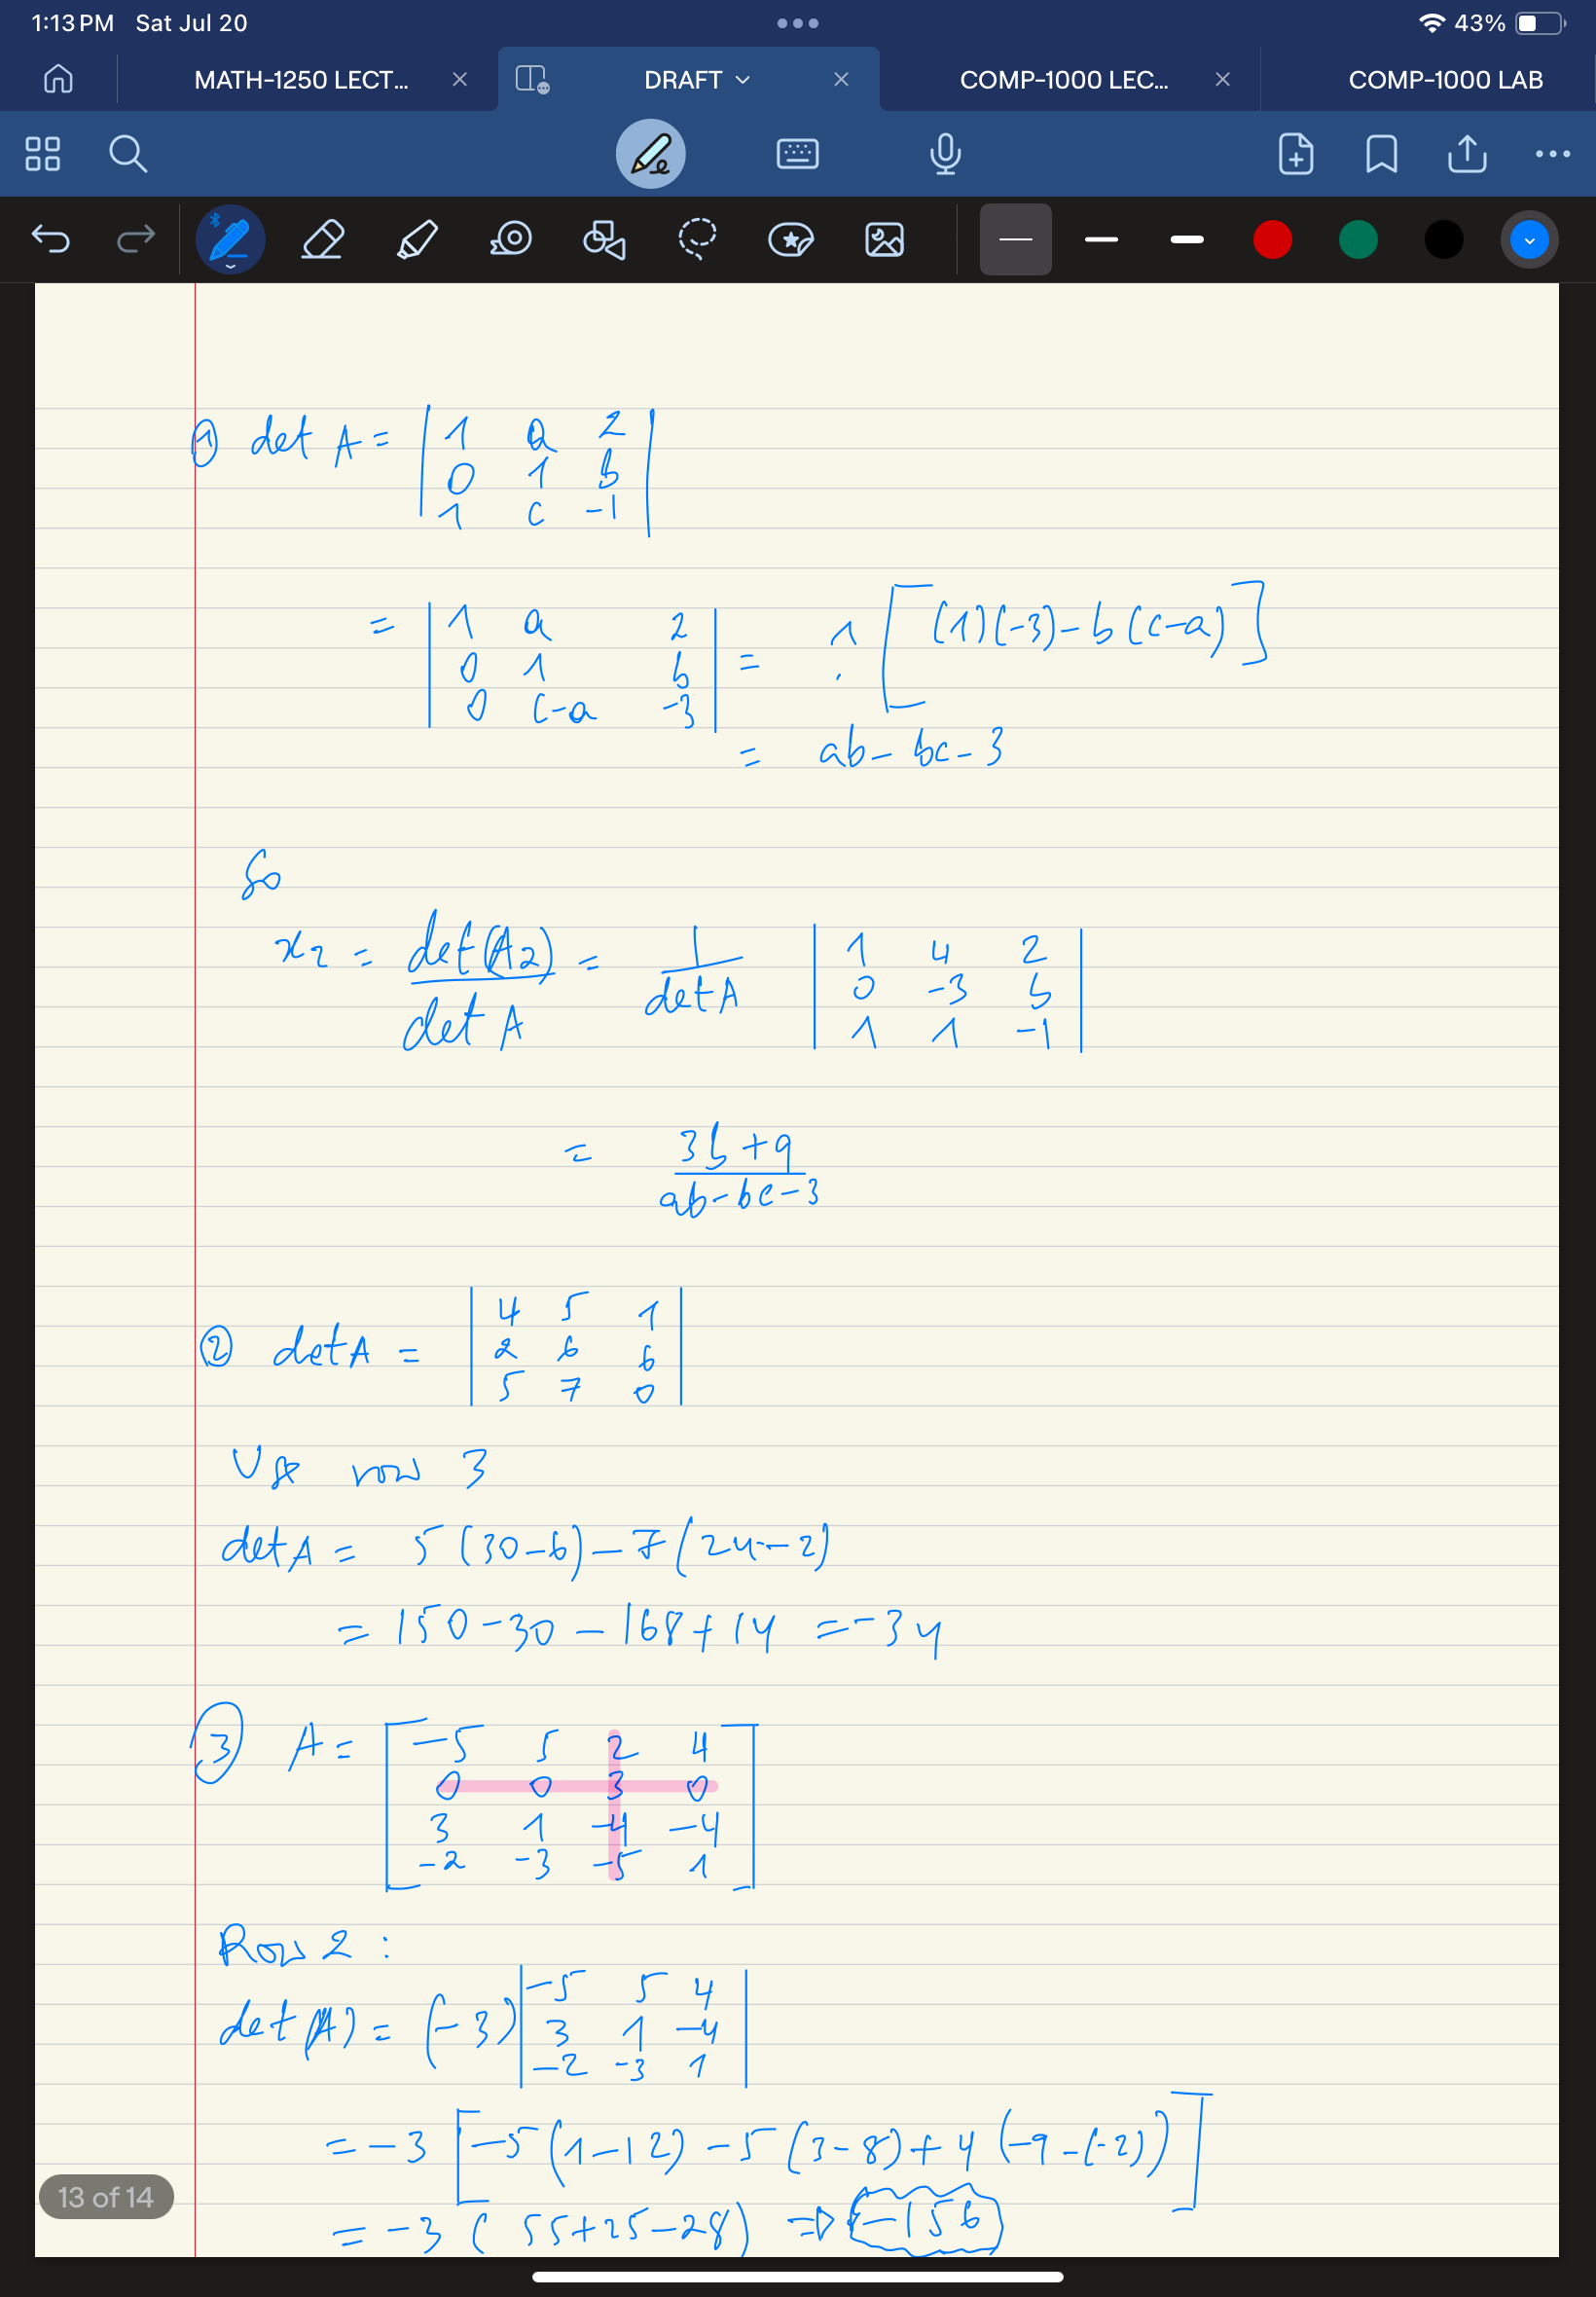 1:13 PM Sat Jul 20
43%
MATH-1250 LECT...
DRAFT
COMP-1000 LEC...
COMP-1000 LAB
① det A = | 1 a 2 |
| 0 1 b |
| 1 c -1 |
= | 1 a 2 | = 1 · [(1)(-3) - b(c-a)]
| 0 1 b |
| 0 c-a -3 |
= ab - bc - 3
So
x₂ = det(A₂) / det A = 1 / det A | 1 4 2 |
| 0 -3 b |
| 1 1 -1 |
= 3b + 9 / ab - bc - 3
② det A = | 4 5 1 |
| 2 6 6 |
| 5 7 0 |
Use row 3
det A = 5(30-6) - 7(24-2)
= 150 - 30 - 168 + 14 = -34
③ A = [ -5 5 2 4 ]
[ 0 0 3 0 ]
[ 3 1 -4 -4 ]
[ -2 -3 -5 1 ]
Row 2 :
det(A) = (-3) | -5 5 4 |
| 3 1 -4 |
| -2 -3 1 |
= -3 [-5(1-12) - 5(3-8) + 4(-9-(-2))]
= -3 (55+25-28) ⇒ -156
13 of 14